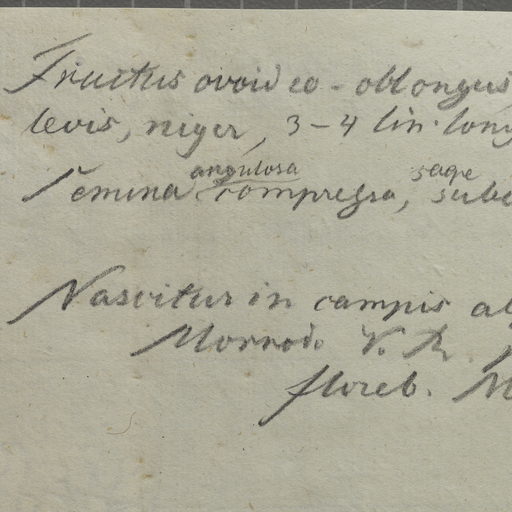 Fructus ovoideo-oblongus,
levis, niger, 3-4 lin. long
angulosa saepe
Semina compressa, sub
Nascitur in campis
V. R.
floreb. M